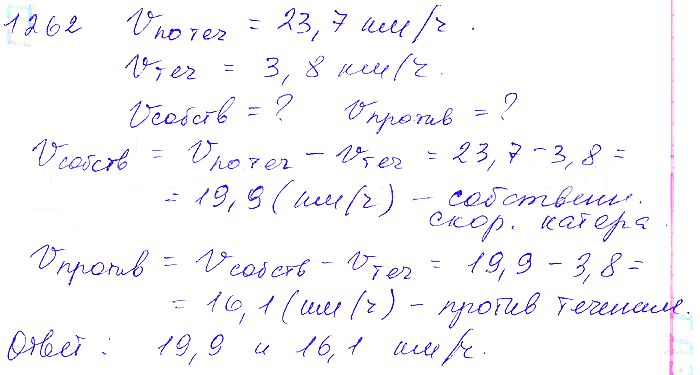 1262 Vпо теч = 23,7 км/ч.
Vтеч = 3,8 км/ч.
Vсобств = ? Vпротив = ?
Vсобств = Vпо теч – Vтеч = 23,7 – 3,8 =
= 19,9 (км/ч) – собственн.
скор. катера
Vпротив = Vсобств – Vтеч = 19,9 – 3,8 =
= 16,1 (км/ч) – против течения.
Ответ: 19,9 и 16,1 км/ч.